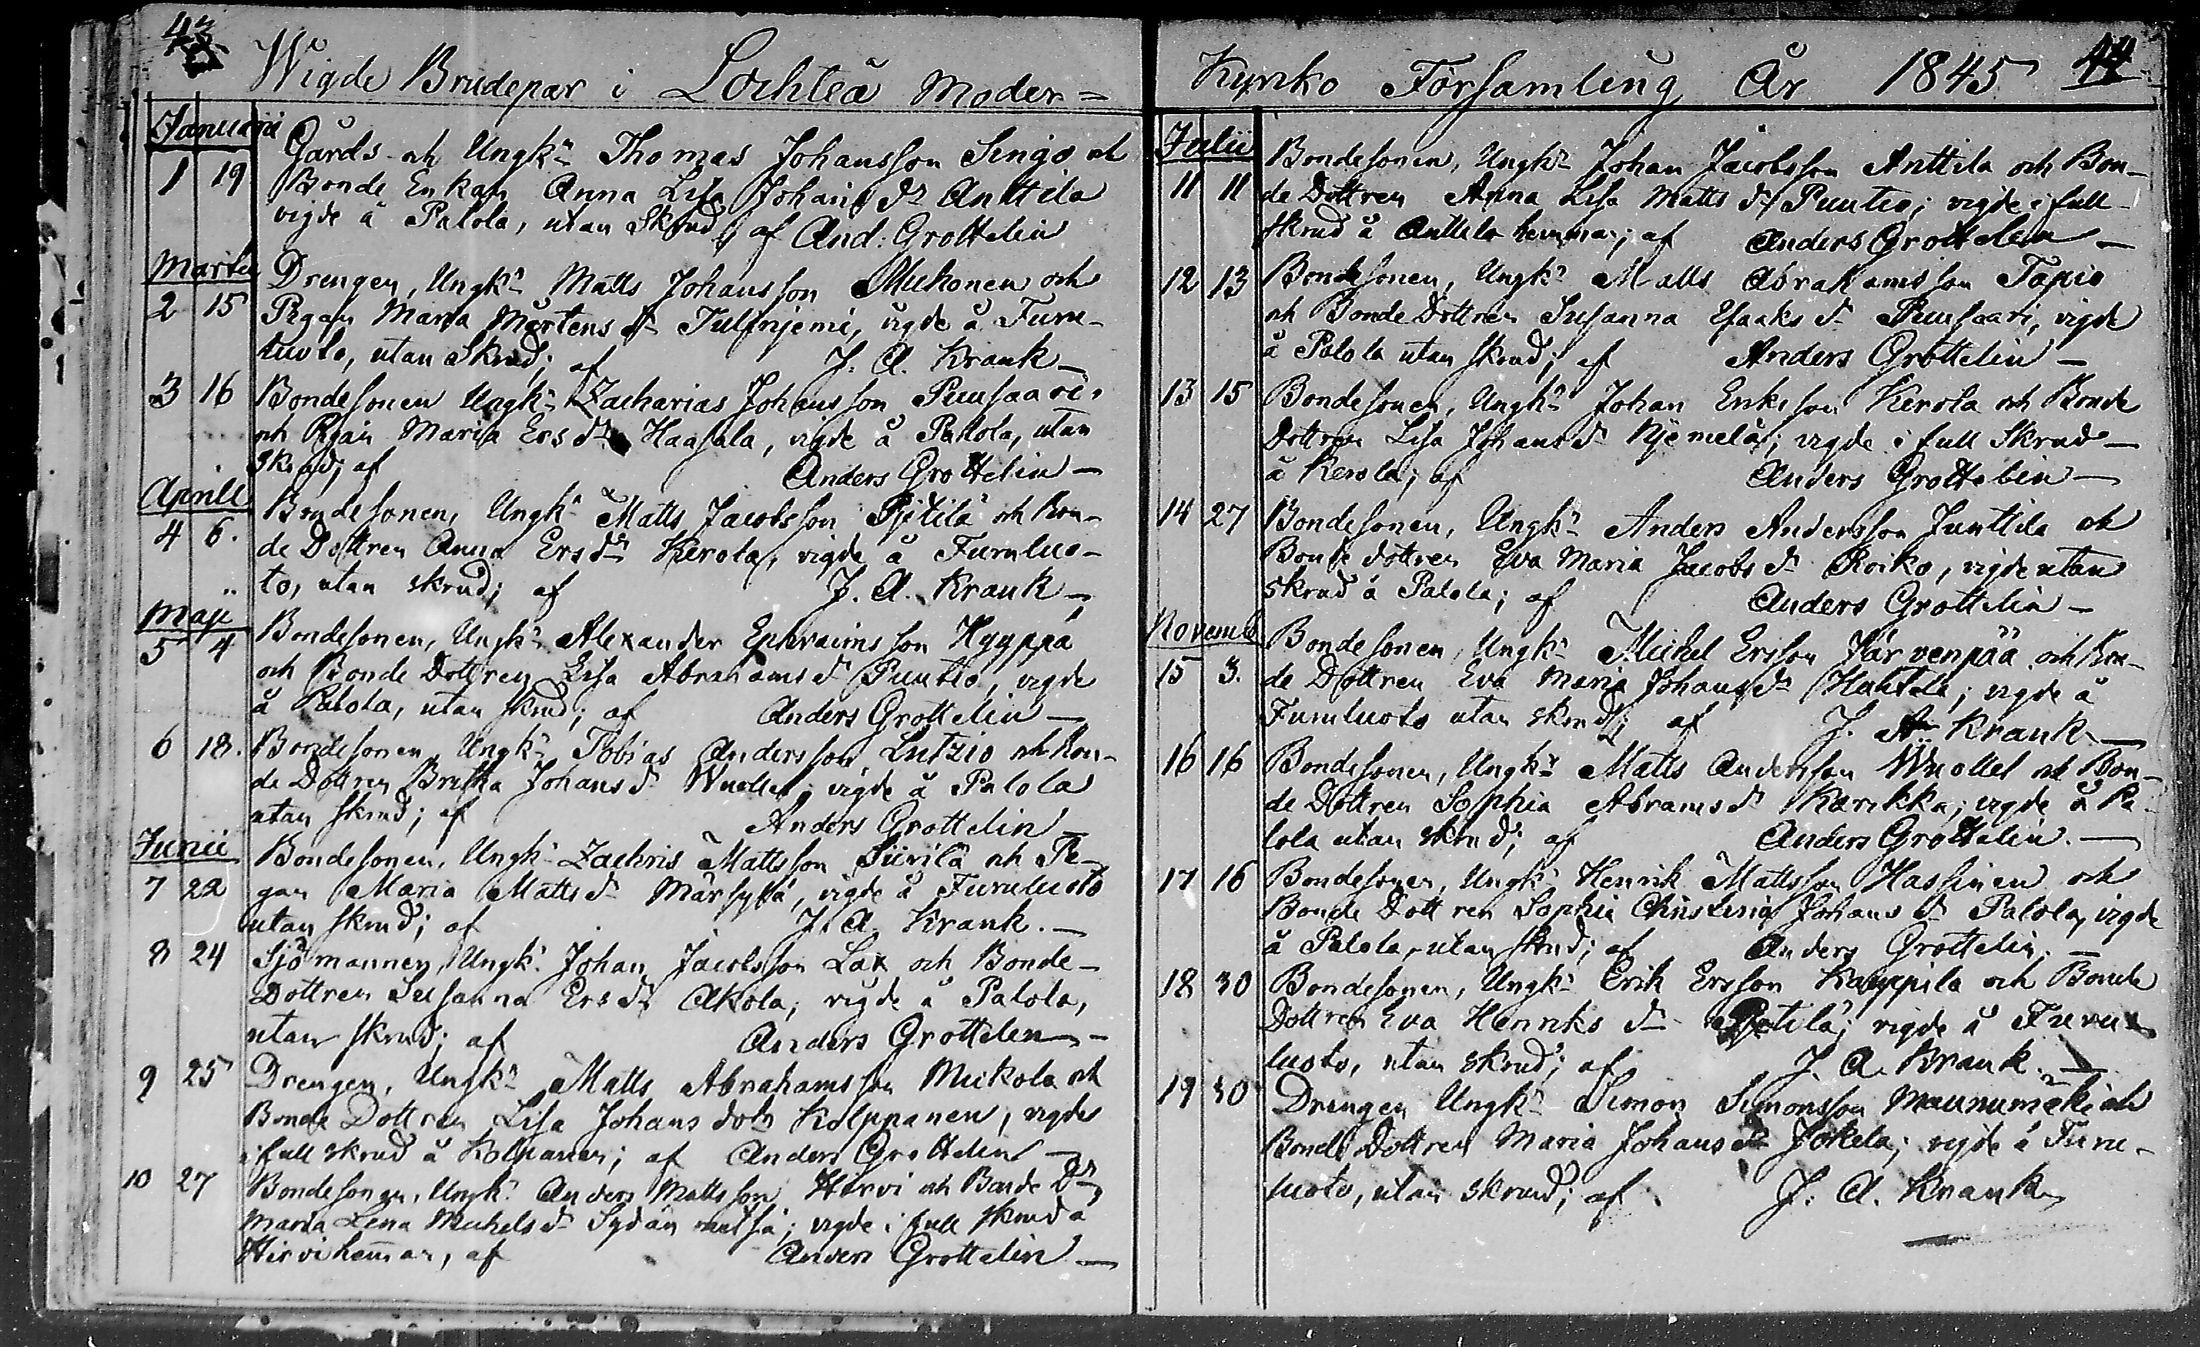 43
Wigde Brudepar i Lochteå Moder=
Januarii
1 19 Gårds- och Ungkn Thomas Johansson Singo och
Bonde Enkan Anna Lisa Johans dr Anttila
vigde å Palola, utan Skrud; af And: Grottelin
Martii
Drengen, Ungkn Matts Johansson Muhonen och
2 15 Pigan Maria Mårtens dr, vigde å Furu-
luoto, utan Skrud; af J. A. Krank
3 16 Bondesonen Ungkn Zacharias Johansson Puusaari
och Pigan Maria Ers dr Haapala, vigde å Palola, utan
Skrud; af Anders Grottelin
Aprill
Bondesonen, Ungkn Matts Jacobsson Pjetilä och Bon-
4 6. de Dottren Anna Ers dr Kerola, vigde å Furuluo-
to, utan skrud; af J. A. Krank
Maji
Bondesonen, Ungkn Alexander Ephraimsson Hyyppä
5 4 och Bonde Dottren Lisa Abrahams dr Puutio, vigde
å Palola, utan skrud; af Anders Grottelin
6 18. Bondesonen Ungkn Tobias Andersson Lutzio och Bon-
de Dottren Britha Johans dr Wuollet; vigde å Palola
utan skrud; af Anders Grottelin
Junii
Bondesonen, Ungkn Zachris Mattsson Siirilä och Pi-
7 22 gan Maria Matts dr Märsylä, vigde å Furuluoto
utan skrud; af J. A. Krank.
8 24 Sjömannen, Ungkn Johan Jacobsson Lax och Bonde-
Dottren Susanna Ers dr Akola; vigde å Palola,
utan skrud; af Anders Grottelin
9 25 Drengen, Ungkn Matts Abrahamsson Mickola och
Bonde Dottren Lisa Johans dotr Kolppanen, vigde
i full skrud å Kolpanen; af Anders Grottelin
10 27 Bondesonen, Ungkn Anders Mattsson Hirvi och Bonde Dr
Maria Lena Michels dr Sydänmetsä; vigde i full skrud å
Hirvi hemman, af Anders Grottelin
44
Kyrko Församling År 1845
Julii
Bondesonen, Ungkn Johan Jacobsson Anttila och Bon-
11 11 de Dottren Anna Lisa Matts dr Puutio; vigde i full
skrud å Anttila hemman; af Anders Grottelin
12 13 Bondesonen, Ungkn Matts Abrahamsson Tapio
och Bonde Dottren Susanna Esaaks dr Puusaari, vigde
å Palola utan skrud; af Anders Grottelin
13 15 Bondesonen, Ungkn Johan Eriksson Kerola och Bonde
Dottren Lisa Johans dr Njemelä; vigde i full Skrud
å Kerola; af Anders Grottelin
14 27 Bondesonen, Ungkn Anders Andersson Junttila och
Bonde dottren Eva Maria Jacobs dr Roiko, vigde utan
Skrud å Palola; af Anders Grottelin
Novemb
Bondesonen, Ungkn Michel Ersson Järvenpää och Bon-
15 3. de Dottren Eva Maria Johans dr Hahtela; vigde å
Furuluoto utan skrud; af J. A. Krank
16 16 Bondesonen, Ungkn Matts Andersson Wuollet och Bon-
de Dottren Sophia Abrams dr Karikka; vigde å Pa-
lola utan skrud; af Anders Grottelin.
17 16 Bondesonen, Ungkn Henrik Mattsson Hassinen och
Bonde Dottren Sophia Christina Johans dr Palola, vigde
å Palola, utan skrud; af Anders Grottelin.
18 30 Bondesonen, Ungkn Erik Ersson Kauppila och Bonde
Dottren Eva Henriks dr Pjetilä; vigde å Furu
luoto, utan skrud; af J. A. Krank.
19 30 Drengen Ungkn Simon Simonsson Maunumäki och
Bonde Dottren Maria Johans dr Jokela; vigde å Furu-
luoto, utan skrud; af J. A. Krank